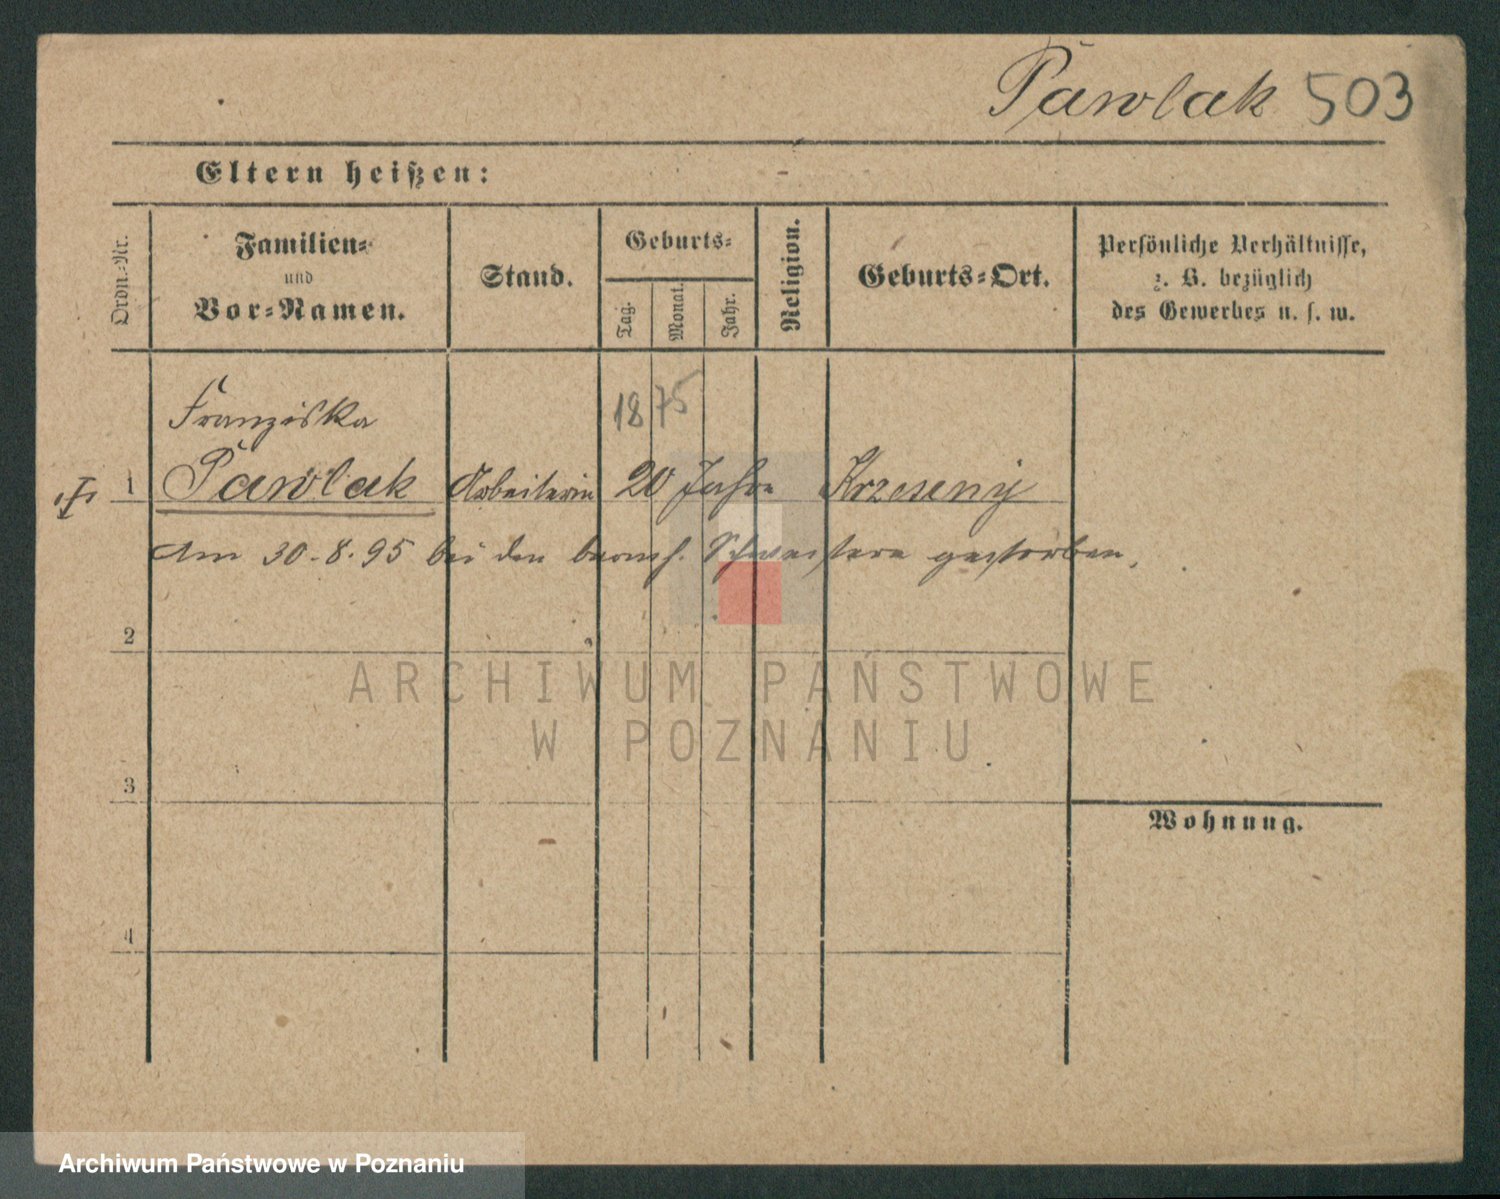 Pawlak 503
Eltern heißen:
Ordn.-Nr.
Familien-
und
Vor-Namen.
Stand.
Geburts-
Tag.
Monat.
Jahr.
Religion.
Geburts-Ort.
Persönliche Verhältnisse,
z. B. bezüglich
des Gewerbes u. s. w.
Franziska 1875
1 Pawlak Arbeiterin 20 Jahre Krzesiny
Am 30-8-95 bei den barmh. Schwestern gestorben.
2
3
4
Wohnung.
ARCHIWUM PAŃSTWOWE
W POZNANIU
Archiwum Państwowe w Poznaniu